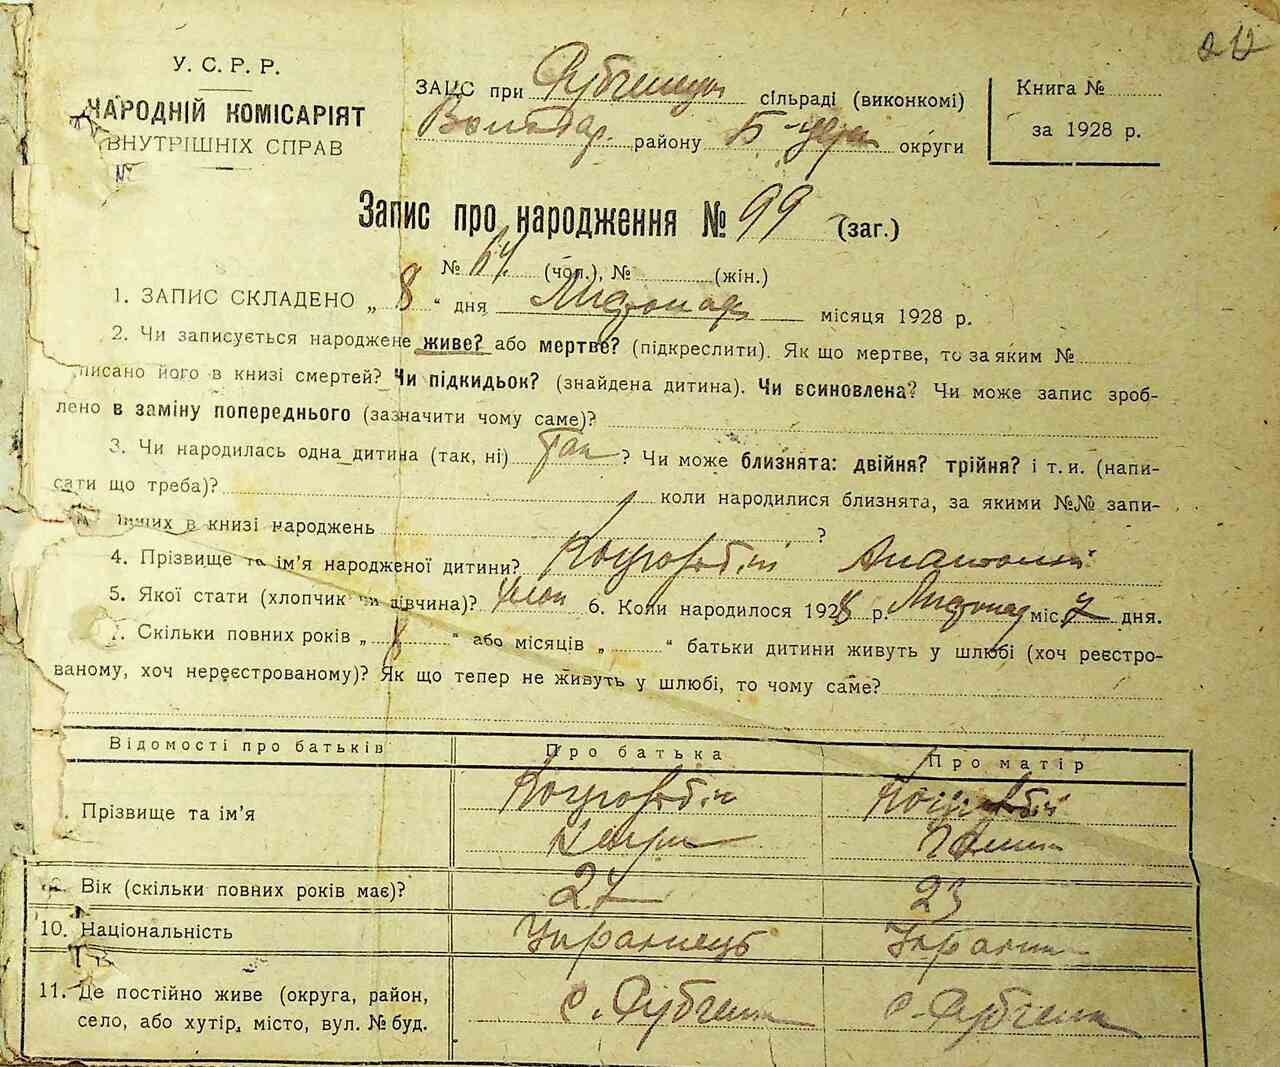 22
У. С. Р. Р.
НАРОДНІЙ КОМІСАРІЯТ
ВНУТРІШНІХ СПРАВ
№
ЗАЦС при сільраді (виконкомі)
Волод. району Б-Церк округи
Книга №
за 1928 р.
Запис про народження № 99 (заг.)
№ 64 (чол.), № (жін.)
1. ЗАПИС СКЛАДЕНО „ 8 “ дня Листопад місяця 1928 р.
2. Чи записується народжене живе? або мертве? (підкреслити). Як що мертве, то за яким №
писано його в книзі смертей? Чи підкидьок? (знайдена дитина). Чи всиновлена? Чи може запис зроб-
лено в заміну попереднього (зазначити чому саме)?
3. Чи народилась одна дитина (так, ні) Так ? Чи може близнята: двійня? трійня? і т. и. (напи-
сати що треба)? коли народилися близнята, за якими №№ запи-
інших в книзі народжень ?
4. Прізвище та ім'я народженої дитини? Анатолій
5. Якої стати (хлопчик чи дівчина)? 6. Коли народилося 1928 р. Листопад міс. 7 дня.
7. Скільки повних років „ 8 “ або місяців „ “ батьки дитини живуть у шлюбі (хоч реєстро-
ваному, хоч нереєстрованому)? Як що тепер не живуть у шлюбі, то чому саме?
Відомості про батьків Про батька Про матір
Прізвище та ім'я
Вік (скільки повних років має)? 27 23
10. Національність Украинець Украин
11. Де постійно живе (округа, район, с. с.
село, або хутір, місто, вул. № буд.